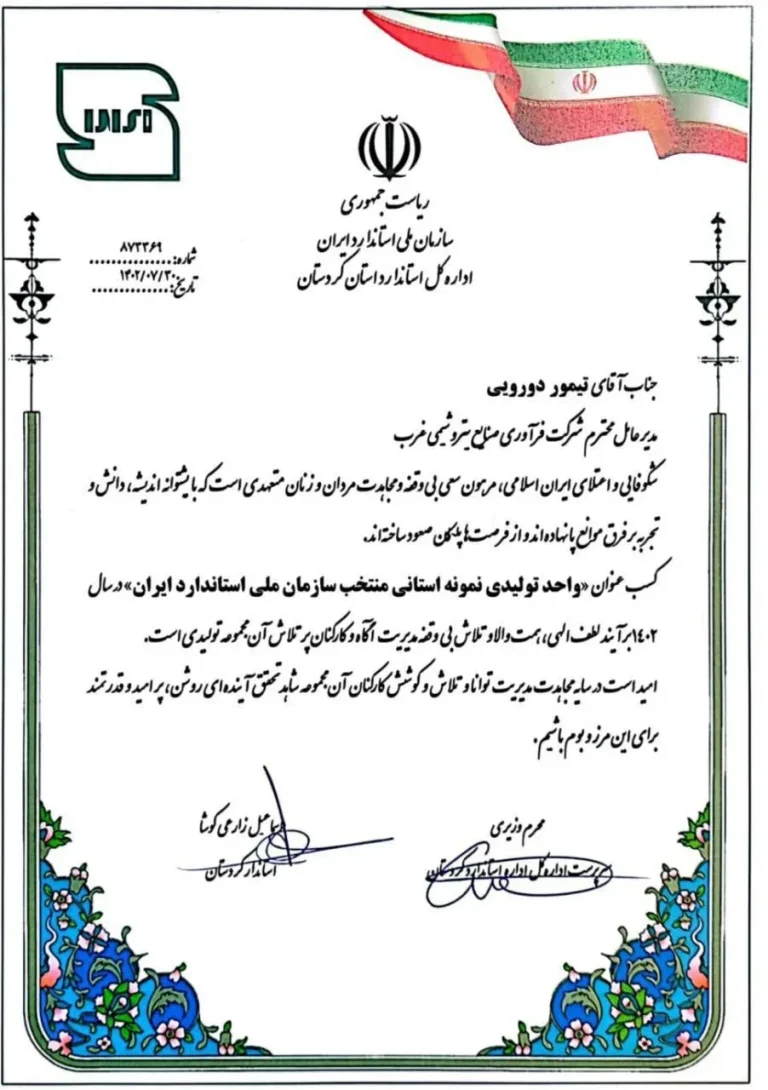 ISIRI
ریاست جمهوری
سازمان ملی استاندارد ایران
اداره کل استاندارد استان کردستان
شماره: ۸۷۳۳۶۹
تاریخ: ۱۴۰۲/۰۷/۳۰
جناب آقای تیمور دورویی
مدیر عامل محترم شرکت فرآوری صنایع پتروشیمی غرب
شکوفایی و اعتلای ایران اسلامی، مرهون سعی بی وقفه و مجاهدت مردان و زنان متعهدی است که با پشتوانه اندیشه، دانش و
تجربه بر فرق موانع پا نهاده اند و از فرصت ها پلکان صعود ساخته اند.
کسب عنوان «واحد تولیدی نمونه استانی منتخب سازمان ملی استاندارد ایران» در سال
۱۴۰۲ برآیند لطف الهی، همت والا و تلاش بی وقفه مدیریت آگاه و کارکنان پر تلاش آن مجموعه تولیدی است.
امید است در سایه مجاهدت مدیریت توانا و تلاش و کوشش کارکنان آن مجموعه شاهد تحقق آینده ای روشن، پر امید و قدرتمند
برای این مرز و بوم باشیم.
محرم وزیری
سرپرست اداره کل اداره استاندارد کردستان
اسماعیل زارعی کوشا
استاندار کردستان